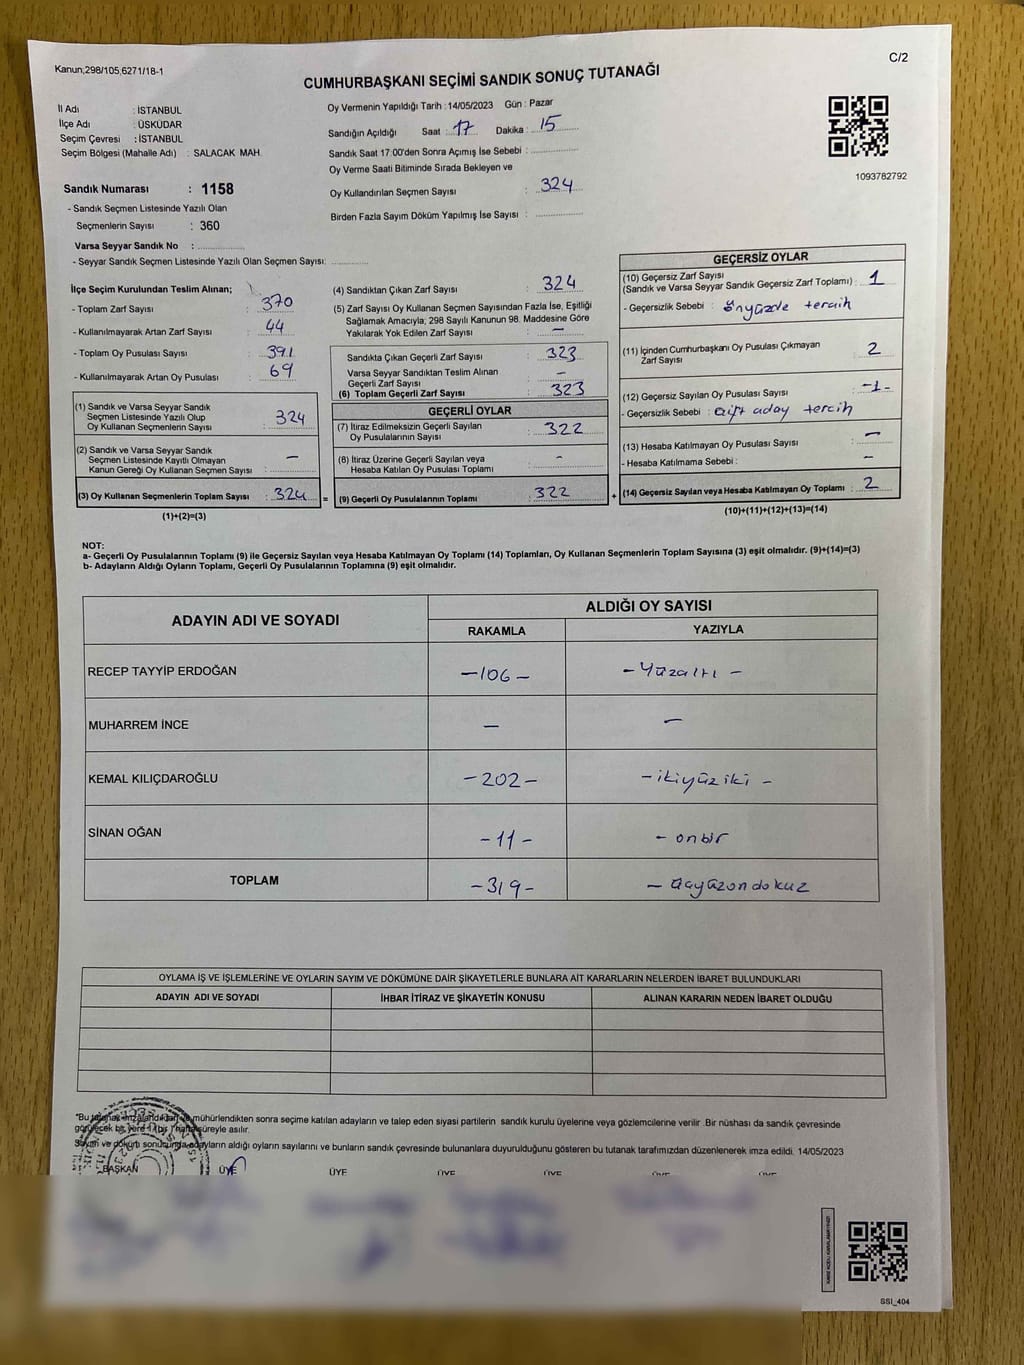 Kanun,298/105,6271/18-1
C/2
CUMHURBAŞKANI SEÇİMİ SANDIK SONUÇ TUTANAĞI
İl Adı : İSTANBUL
İlçe Adı : ÜSKÜDAR
Seçim Çevresi : İSTANBUL
Seçim Bölgesi (Mahalle Adı) : SALACAK MAH.
Sandık Numarası : 1158
- Sandık Seçmen Listesinde Yazılı Olan
Seçmenlerin Sayısı : 360
Varsa Seyyar Sandık No :
- Seyyar Sandık Seçmen Listesinde Yazılı Olan Seçmen Sayısı:
Oy Vermenin Yapıldığı Tarih : 14/05/2023 Gün : Pazar
Sandığın Açıldığı Saat : 17 Dakika : 15
Sandık Saat 17:00'den Sonra Açımış İse Sebebi :
Oy Verme Saati Bitiminde Sırada Bekleyen ve
Oy Kullandırılan Seçmen Sayısı : 324
Birden Fazla Sayım Döküm Yapılmış İse Sayısı :
1093782792
İlçe Seçim Kurulundan Teslim Alınan;
- Toplam Zarf Sayısı : 370
- Kullanılmayarak Artan Zarf Sayısı : 44
- Toplam Oy Pusulası Sayısı : 391
- Kullanılmayarak Artan Oy Pusulası : 69
(1) Sandık ve Varsa Seyyar Sandık
Seçmen Listesinde Yazılı Olup
Oy Kullanan Seçmenlerin Sayısı : 324
(2) Sandık ve Varsa Seyyar Sandık
Seçmen Listesinde Kayıtlı Olmayan
Kanun Gereği Oy Kullanan Seçmen Sayısı : –
(3) Oy Kullanan Seçmenlerin Toplam Sayısı : 324 =
(1)+(2)=(3)
(4) Sandıktan Çıkan Zarf Sayısı : 324
(5) Zarf Sayısı Oy Kullanan Seçmen Sayısından Fazla İse, Eşitliği
Sağlamak Amacıyla; 298 Sayılı Kanunun 98. Maddesine Göre
Yakılarak Yok Edilen Zarf Sayısı : –
Sandıkta Çıkan Geçerli Zarf Sayısı : 323
Varsa Seyyar Sandıktan Teslim Alınan
Geçerli Zarf Sayısı : –
(6) Toplam Geçerli Zarf Sayısı : 323
GEÇERLİ OYLAR
(7) İtiraz Edilmeksizin Geçerli Sayılan
Oy Pusulalarının Sayısı : 322
(8) İtiraz Üzerine Geçerli Sayılan veya
Hesaba Katılan Oy Pusulası Toplamı : -
(9) Geçerli Oy Pusulalarının Toplamı : 322 +
GEÇERSİZ OYLAR
(10) Geçersiz Zarf Sayısı
(Sandık ve Varsa Seyyar Sandık Geçersiz Zarf Toplamı) : 1
- Geçersizlik Sebebi : önyüzde tercih
(11) İçinden Cumhurbaşkanı Oy Pusulası Çıkmayan
Zarf Sayısı : 2
(12) Geçersiz Sayılan Oy Pusulası Sayısı : -1-
- Geçersizlik Sebebi : çift aday tercih
(13) Hesaba Katılmayan Oy Pusulası Sayısı : –
- Hesaba Katılmama Sebebi : –
(14) Geçersiz Sayılan veya Hesaba Katılmayan Oy Toplamı : 2
(10)+(11)+(12)+(13)=(14)
NOT:
a- Geçerli Oy Pusulalarının Toplamı (9) ile Geçersiz Sayılan veya Hesaba Katılmayan Oy Toplamı (14) Toplamları, Oy Kullanan Seçmenlerin Toplam Sayısına (3) eşit olmalıdır. (9)+(14)=(3)
b- Adayların Aldığı Oyların Toplamı, Geçerli Oy Pusulalarının Toplamına (9) eşit olmalıdır.
ADAYIN ADI VE SOYADI
ALDIĞI OY SAYISI
RAKAMLA YAZIYLA
RECEP TAYYİP ERDOĞAN -106- -Yüzaltı-
MUHARREM İNCE – –
KEMAL KILIÇDAROĞLU -202- -ikiyüziki-
SİNAN OĞAN -11- -onbir
TOPLAM -319- -üçyüzondokuz
OYLAMA İŞ VE İŞLEMLERİNE VE OYLARIN SAYIM VE DÖKÜMÜNE DAİR ŞİKAYETLERLE BUNLARA AİT KARARLARIN NELERDEN İBARET BULUNDUKLARI
ADAYIN ADI VE SOYADI İHBAR İTİRAZ VE ŞİKAYETİN KONUSU ALINAN KARARIN NEDEN İBARET OLDUĞU
"Bu tutanak imzalandıktan ve mühürlendikten sonra seçime katılan adayların ve talep eden siyasi partilerin sandık kurulu üyelerine veya gözlemcilerine verilir .Bir nüshası da sandık çevresinde
görülecek bir yere 1 (bir) hafta süreyle asılır.
Sayım ve dökümü sonucunda adayların aldığı oyların sayılarını ve bunların sandık çevresinde bulunanlara duyurulduğunu gösteren bu tutanak tarafımızdan düzenlenerek imza edildi. 14/05/2023
BAŞKAN ÜYE ÜYE ÜYE ÜYE ÜYE ÜYE
SSI_404